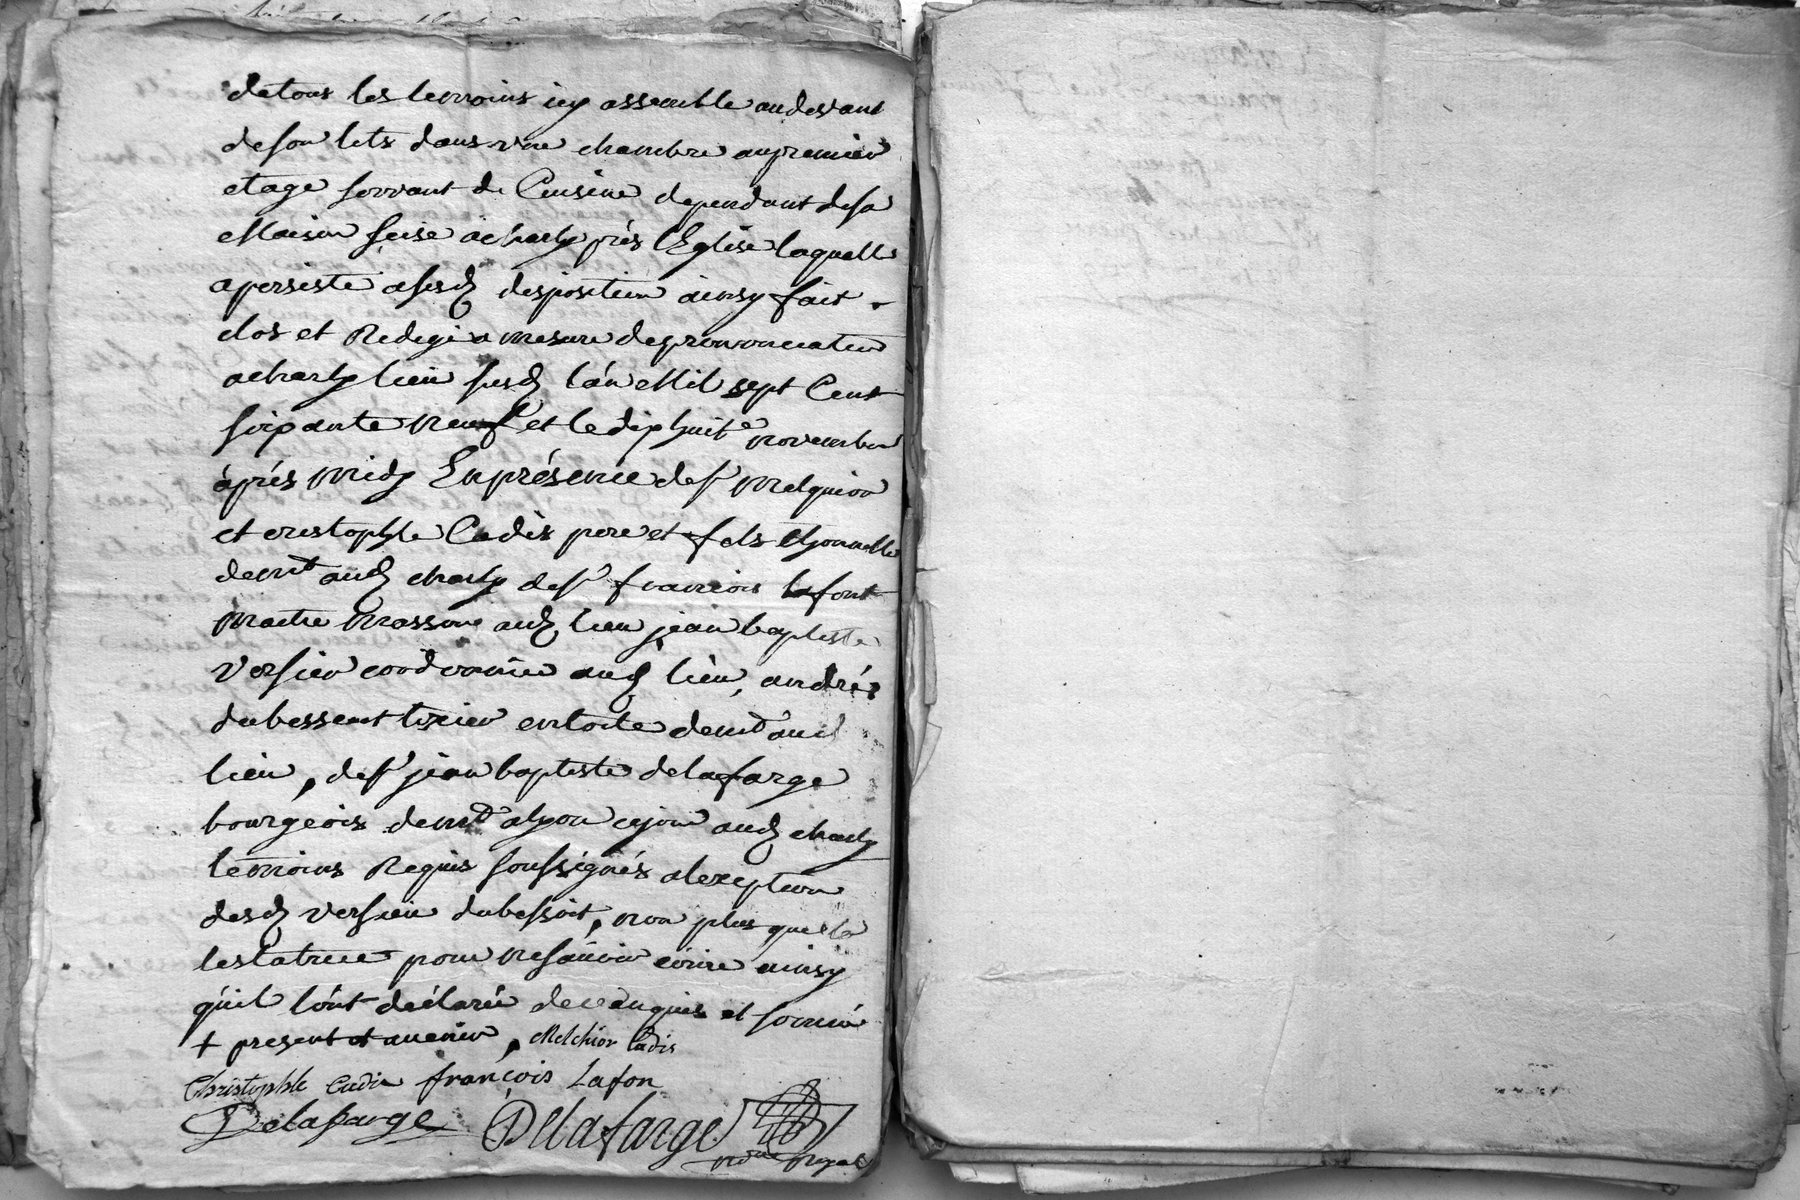 de tous les temoins icy assemblé au devant
de son lits dans une chambre au premier
etage servant de Cuisine dependant de sa
Maison scise a charly près l'Eglise laquelle
a persisté a sesd disposition ainsy fait
clos et Redigé a mesure de prononciation
a charly lieu susd l'an Mil sept Cent
soixante neuf et le dix huite novembre
après midy En présence de sr melquior
et cristophle Cadis pere et fils
demt aud charly de sr francois lafont
maitre masson aud lieu jean baptiste
Versieu cordonnier aud lieu, andré
dubessent tixier en toile demt aud
lieu, de sr jean baptiste delafarge
bourgeois demt a lyon cejour aud charly
temoins Requis soussignés a lexception
desd Versieu dubessoit, non plus que la
testatrice pour ne sauoir ecrire ainsy
quil l'ont declaré de ce enquis et sommé
+ present et auenir, Melchior Cadis
Christophle Cadis françois Lafon
Delafarge Delafarge
nore Royal